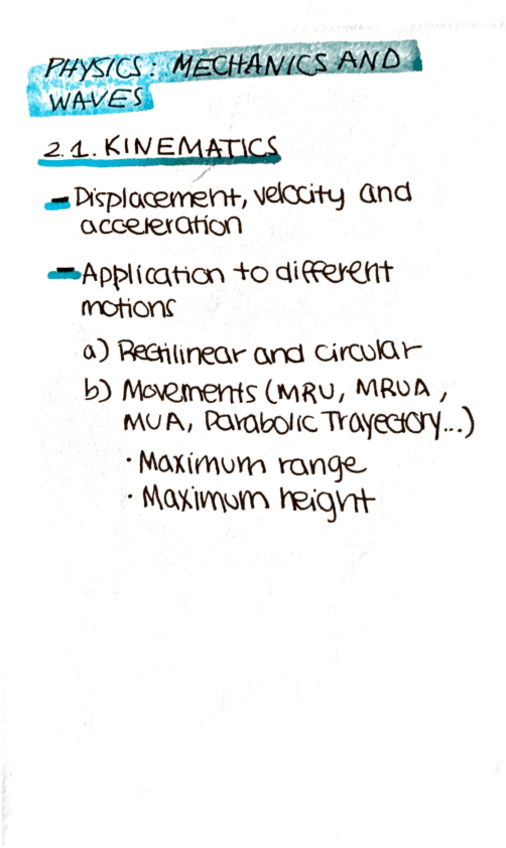 PHYSICS: MECHANICS AND
WAVES
2.1. KINEMATICS
- Displacement, velocity and
acceleration
- Application to different
motions
a) Rectilinear and circular
b) Movements (MRU, MRUA,
MUA, Parabolic Trayectory...)
· Maximum range
· Maximum height